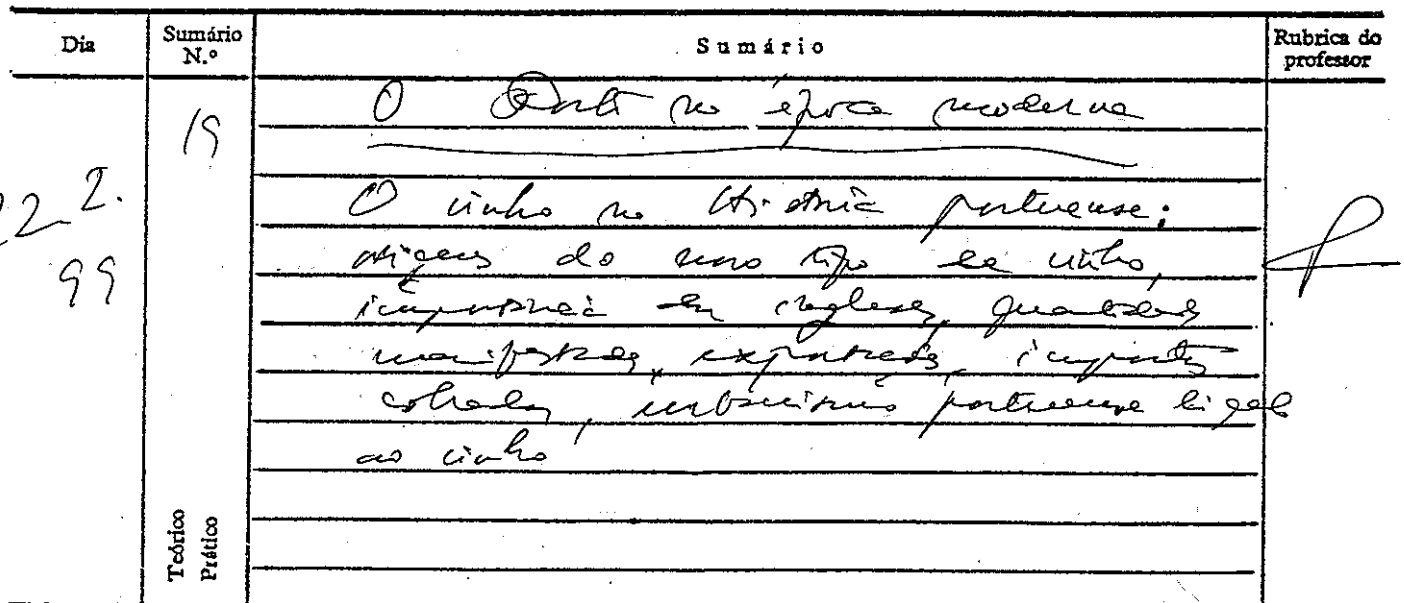 Dia
Sumário N.º
Sumário
Rubrica do professor
22 2. 99
19
O Porto na época moderna
O vinho na História portuense:
origens do novo tipo de vinho,
importância dos ingleses, quantidades
manifestadas, exportadas, impostos
cobrados, urbanismo portuense ligado
ao vinho
Teórico
Prático